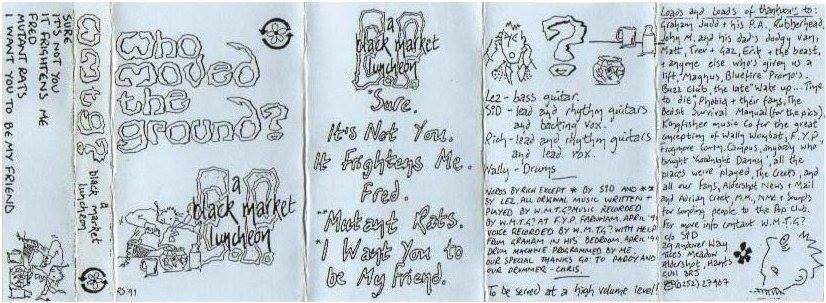 SURE
IT'S NOT YOU
IT FRIGHTENS ME
FRED
MUTANT RATS
I WANT YOU TO BE MY FRIEND
W M T G ?
a
black market
luncheon
who
moved
the
ground?
a
black market
luncheon
'91
a
black market
luncheon
*Sure.
It's Not You.
It Frightens Me.
Fred.
**Mutant Rats.
*I Want You to
be My Friend.
Lez - bass guitar.
SID - lead and rhythm guitars
and backing vox.
Rich - lead and rhythm guitars
and lead vox.
Wally - Drums
WORDS BY RICH EXCEPT * BY SID AND **
BY LEZ. ALL ORIGINAL MUSIC WRITTEN +
PLAYED BY W.M.T.G? MUSIC RECORDED
BY W.M.T.G? AT F.Y.P. FARNHAM. APRIL
VOICE RECORDED BY W.M.T.G? WITH HELP
FROM GRAHAM IN HIS BEDROOM. APRIL
DRUM MACHINE PROGRAMMED BY ME
OUR SPECIAL THANKS GO TO PADDY AND
OUR DRUMMER - CHRIS.
To be served at a high volume level!!
Loads and Loads of thankyou's to:
Graham Judd + his P.A., Rubberhead,
John M. and his dad's dodgy van,
Matt, Trev + Gaz, Erik + the beast,
+ anyone else who's given us a
lift, Magnus, Bluefire Promo's.
Buzz Club, the late "Wake up... Time
to die", Phobia + their fans, The
Bedsit Survival Manual (for the pics),
Kingfisher music Co for the great
conception of Wally Wombat, F.Y.P,
Frogmore Comm. Campus, anybody who
bought "Goodnight Danny", all the
places we've played, The Creets, and
all our fans, Aldershot News + Mail
and Adrian Creek, M.M., NME + Sounds
for sending people to the Pop Club.
For more info contact W.M.T.G?
SID
Andover Way
Tices Meadow
Aldershot, Hants
GU11
(0252) 27907